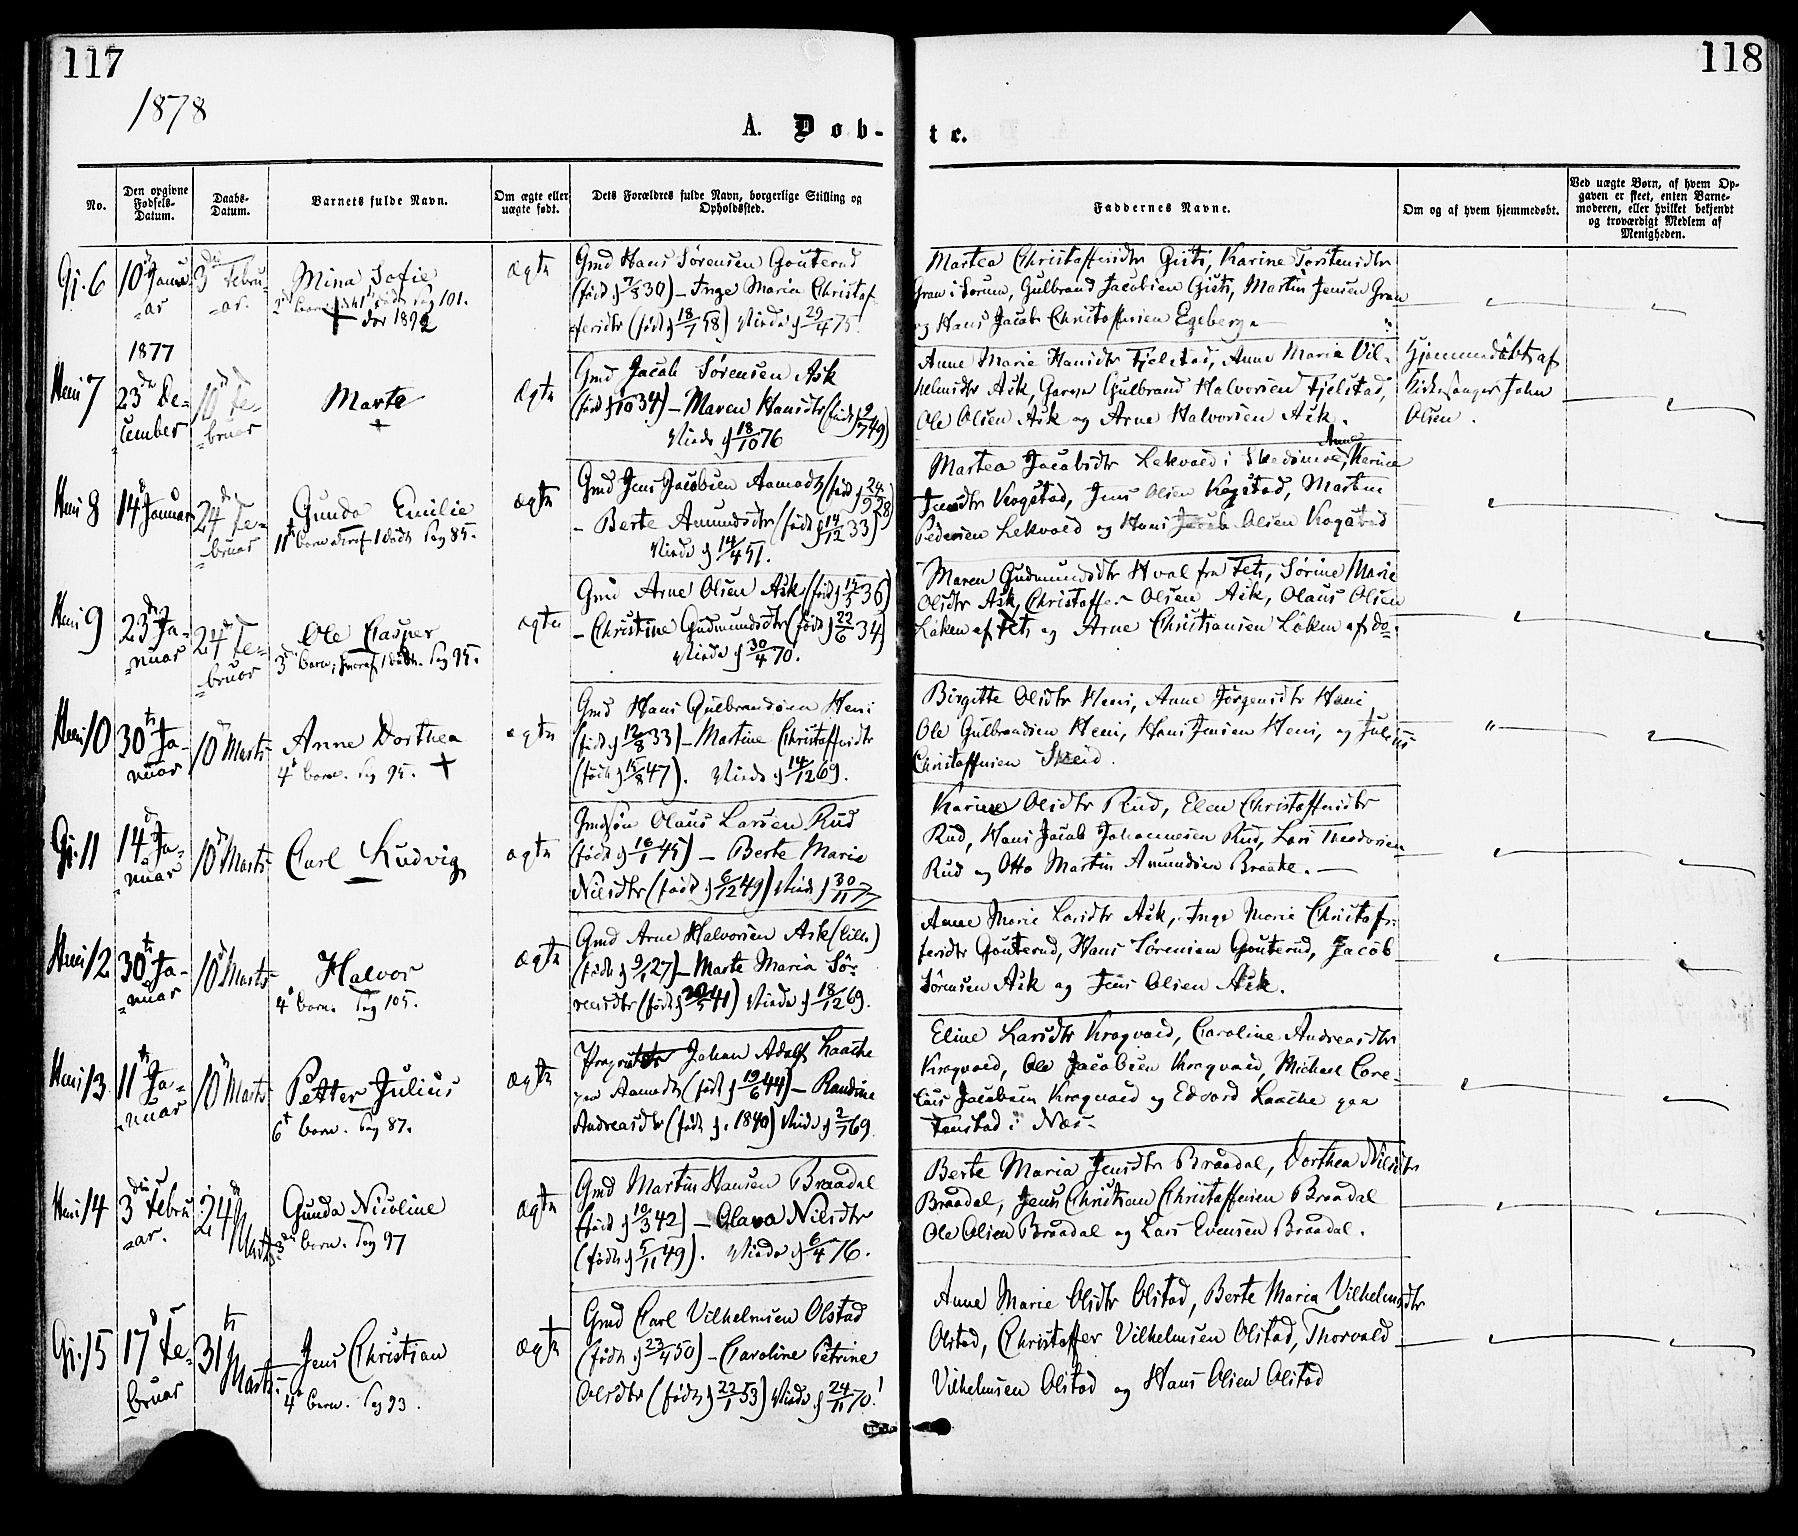 117
118
1878
A. Døb-
te.
No.
Den opgivne Fødsels-Datum.
Daabs-Datum.
Barnets fulde Navn.
Om ægte eller uægte født.
Dets Forældres fulde Navn, borgerlige Stilling og Opholdssted.
Faddernes Navne.
Om og af hvem hjemmedøbt.
Ved uægte Børn, af hvem Op-
gaven er skeet, enten Barne-
moderen, eller hvilket bekjendt
og troværdigt Medlem af
Menigheden.
Gj. 6
10d Janu-
ar
3die Febru-
ar.
Mina Sofie
Pag 101.
dør 1892
ægte
Gmd Hans Sørensen Gouterud
(født d 7/3 30) – Inge Maria Christof
fersdtr (født d 18/7 58) Viede d 29/4 75!
Martea Christoffersdtr Gisti, Karine Torstensdtr
Gran i Sørum, Gulbrand Jacobsen Gisti, Martin Jensen Gran
og Hans Jacob Christoffersen Egeberg
Heni 7
1877
23de De-
cember
10d Fe-
bruar
Marte
ægte
Gmd Jacob Sørensen Ask
– Maren Hansdtr (født d 2/7 49)
Viede d 18/10 76
Anne Marie Hansdtr Fjelstad, Anne Maria Vil-
helmsdtr Ask, Gulbrand Halvorsen Fjelstad,
Ole Olsen Ask og Arne Halvorsen Ask.
Hjemmedøbt af
Kirkesanger John
Olsen.
Heni 8
14d Januar
24d Fe-
bruar
Gunda Emilie
11t barn Pag 85.
ægte
Gmd Jens Jacobsen Aamodt (født d 24/9 28)
– Berte Amundsdtr (født d 14/12 33)
Viede d 14/4 51.
Martea Jacobsdtr Lekvold i Skedsmoe, Anne Karine
Jensdtr Kogstad, Jens Olsen Kogstad, Martin
Pedersen Lekvold og Hans Jacob Olsen Kogstad
Heni 9
23de Ja-
nuar
24d Fe-
bruar
Ole Casper
3d barn, Pag 95.
ægte
Gmd Arne Olsen Ask (født d 15/5 36)
– Christine Gudmundsdtr (født d 22/6 34)
Viede d 30/4 70.
Maren Gudmundsdtr Hval fra Fets, Sørine Marie
Olsdtr Ask, Christoffer Olsen Ask, Olaus Olsen
Løken af Fets og Arne Christiansen Løken af do.
Heni 10
30te Ja-
nuar
10d Marts
Anne Dorthea
4d barn. Pag 95. +
ægte
Gmd Hans Gulbrandsen Heni
(født d 12/8 33) – Martine Christoffersdtr
(født d 15/8 47). Viede d 14/12 69.
Birgitte Olsdtr Heni, Anne Jørgensdtr Heni
Ole Gulbrandsen Heni, Hans Jensen Heni, og Julius
Christoffersen Skeid.
Gj. 11
14d Ja-
nuar
10d Marts
Carl Ludvig
ægte
Gmdsøn Olaus Larsen Rud
(født d 16/1 45) – Berte Marie
Nilsdtr (født d 6/12 49) Viede d 30/11 77
Karine Olsdtr Rud, Elen Christoffersdtr
Rud, Hans Jacob Johannesen Rud, Lars Theodorsen
Rud og Otto Martin Amundsen Braate.
Heni 12
30te Ja-
nuar
10d Marts
Halvor
4d barn. Pag 105.
ægte
Gmd Arne Halvorsen Ask (lille)
(født d 9/1 27) – Marte Maria Sø-
rensdtr (født d 20/5 41) Viede d 18/12 69.
Anne Marie Larsdtr Ask, Inge Marie Christof-
fersdtr Gouterud, Hans Sørensen Gouterud, Jacob
Sørensen Ask og Jens Olsen Ask.
Heni 13
11te Ja-
nuar
10d Marts
Petter Julius
6t barn. Pag 87.
ægte
Johan Adolf Laache
paa Aamodt (født d 19/6 44) – Randine
Andreasdtr (født d. 1840) Viede d 2/7 69.
Eline Larsdtr Krogvold, Caroline Andreasdtr
Krogvold, Ole Jacobsen Krogvold, Michael Core-
lius Jacobsen Krogvold og Edvard Laache paa
i Næs.
Heni 14
3die Febru
ar.
24d Marts
Gunda Nicoline
3d barn. Pag 97
ægte
Gmd Martin Hansen Braadal
(født d 10/3 42) – Olava Nilsdtr
(født d 5/11 49). Viede d 6/4 76.
Berte Maria Jensdtr Braadal, Dorthea Nilsdtr
Braadal, Jens Christian Christoffersen Braadal
Ole Olsen Braadal og Lars Evensen Braadal.
Gj. 15
17d Fe-
bruar
31te Marts
Jens Christian
4d barn. Pag 93.
ægte
Gmd Carl Vilhelmsen Olstad
(født d 23/4 50) – Caroline Petrine
Olsdtr (født d 22/1 53) Viede d 24/11 70!
Anne Marie Olsdtr Olstad, Berte Maria Vilhelmsdtr
Olstad, Christoffer Vilhelmsen Olstad, Thorvald
Vilhelmsen Olstad og Hans Olsen Olstad